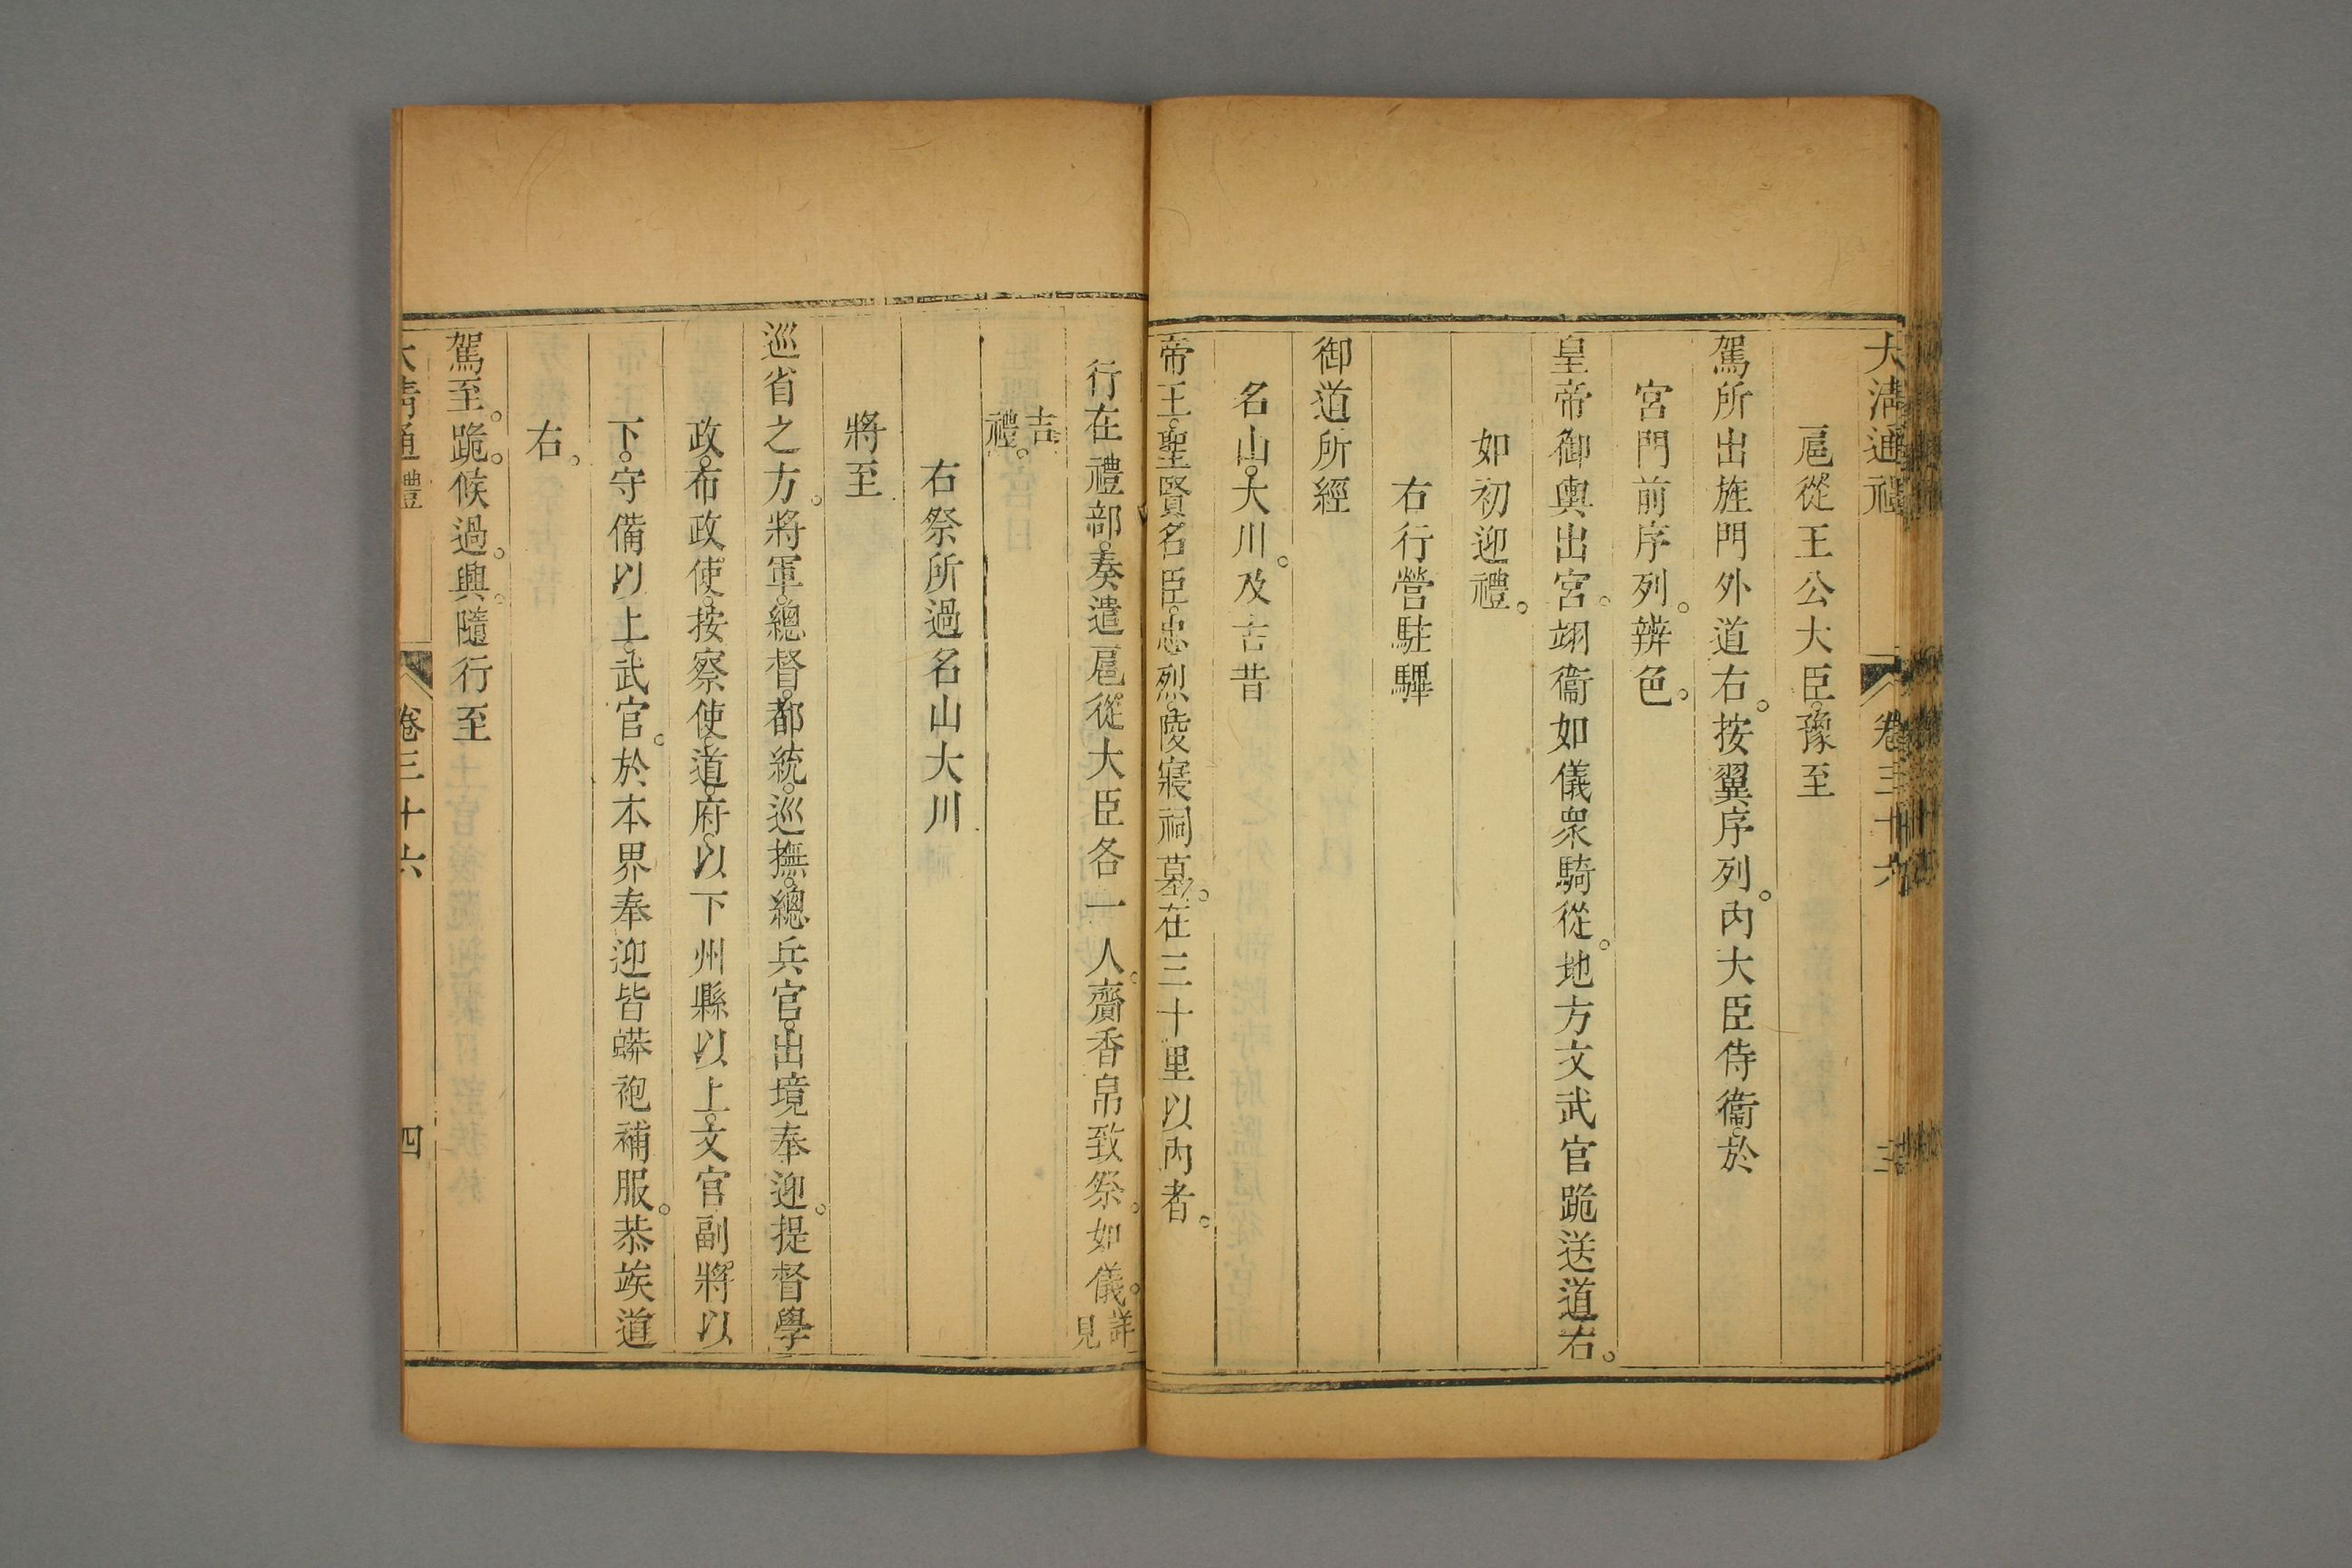 大清通禮 卷三十六 三
扈從王公大臣。豫至
駕所出旌門外道右。按翼序列。內大臣侍衞。於
宮門前序列。辨色。
皇帝御輿出宮。翊衞如儀衆騎從。地方文武官跪送道右。
如初迎禮。
右行營駐驆
御道所經
名山。大川。及古昔
帝王。聖賢名臣。忠烈。陵寢祠墓。在三十里以內者。
行在禮部。奏遣扈從大臣各一人。齎香帛致祭。如儀。詳見
吉禮。
右祭所過名山大川
將至
巡省之方。將軍。總督。都統。巡撫。總兵官。出境奉迎。提督學
政。布政使。按察使。道。府。以下州縣以上。文官副將以
下。守備以上。武官。於本界奉迎皆蟒袍補服。恭竢道
右。
駕至。跪。候過。興。隨行至
大清通禮 卷三十六 四